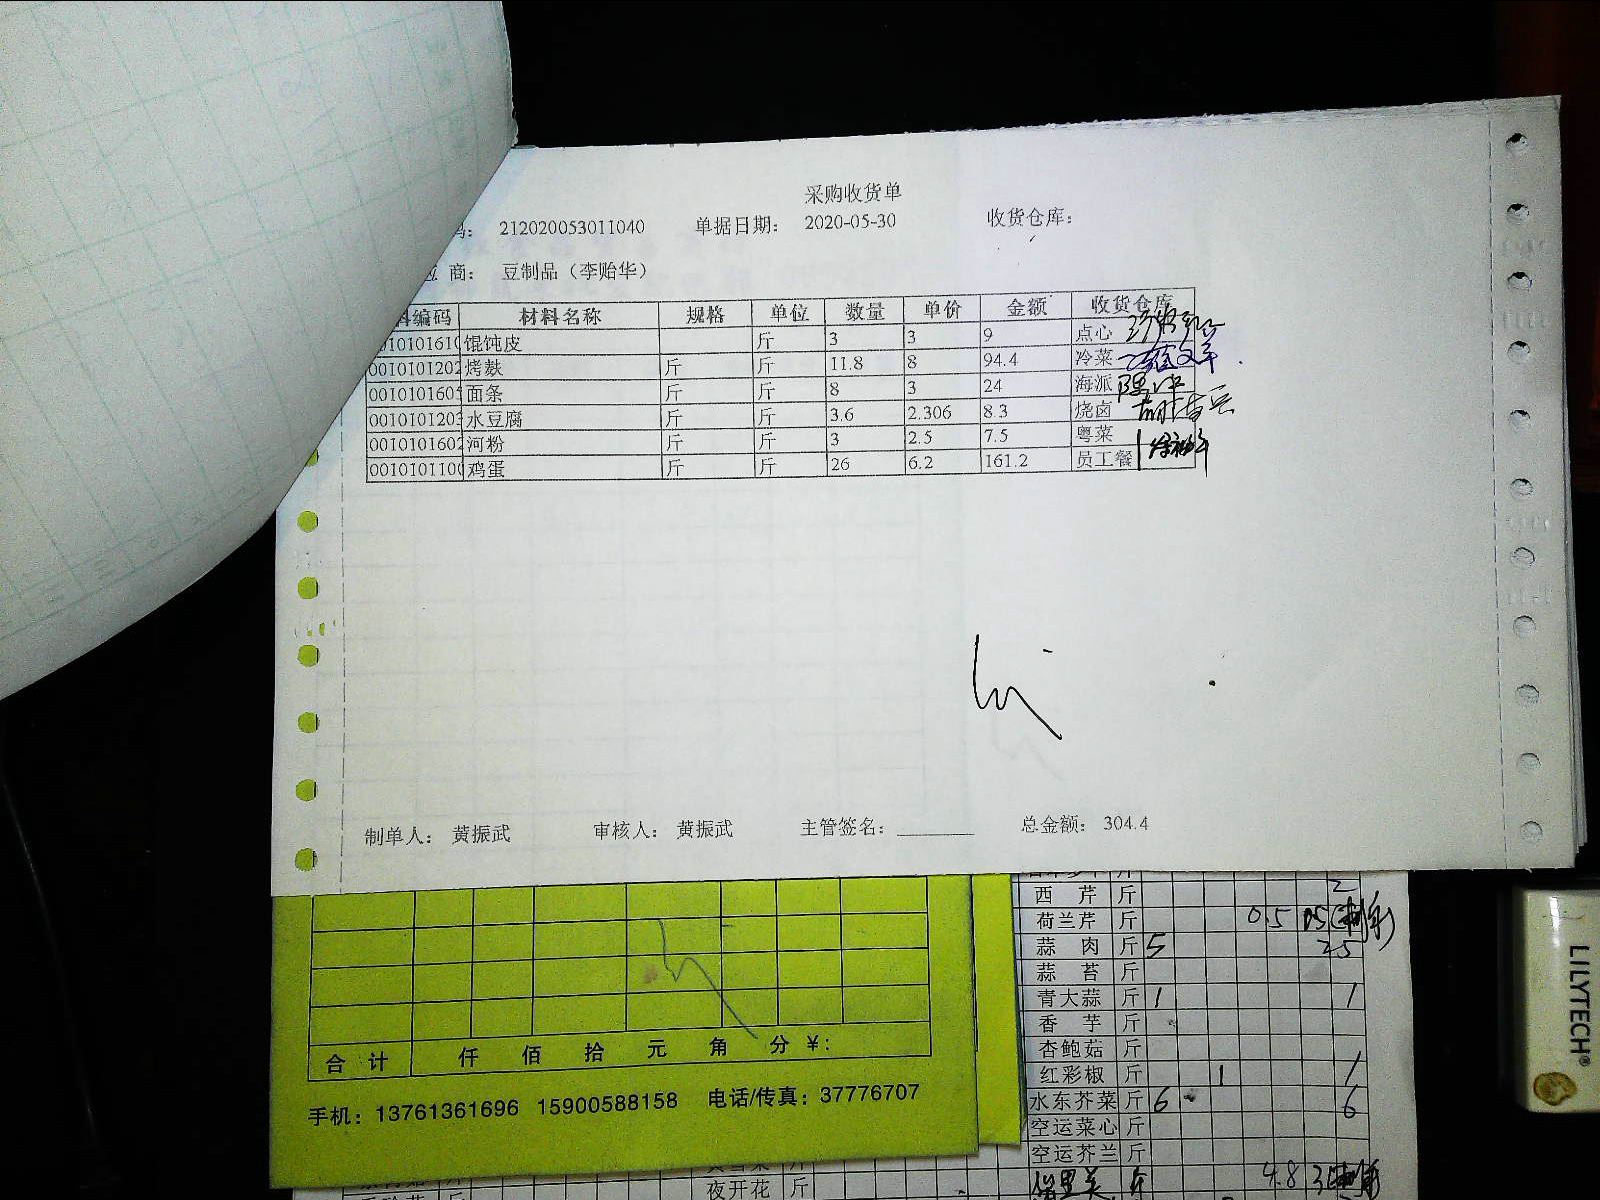 采购收货单
码： 212020053011040 单据日期： 2020-05-30 收货仓库：
应 商： 豆制品（李贻华）
料编码 材料名称 规格 单位 数量 单价 金额 收货仓库
001010161 馄饨皮 斤 3 3 9 点心
001010120 烤麸 斤 斤 11.8 8 94.4 冷菜
001010160 面条 斤 斤 8 3 24 海派
001010120 水豆腐 斤 斤 3.6 2.306 8.3 烧卤
001010160 河粉 斤 斤 3 2.5 7.5 粤菜
001010110 鸡蛋 斤 斤 26 6.2 161.2 员工餐
制单人： 黄振武 审核人： 黄振武 主管签名： 总金额： 304.4
合 计 仟 佰 拾 元 角 分 ¥:
手机：13761361696 15900588158 电话/传真：37776707
2
西 芹 斤
荷兰芹 斤 0.5
蒜 肉 斤 5
蒜 苔 斤
青大蒜 斤 1 1
香 芋 斤
杏鲍菇 斤
红彩椒 斤 1 1
水东芥菜 斤 6 6
空运菜心 斤
空运芥兰 斤
斤 4.8
夜开花 斤
LILYTECH®